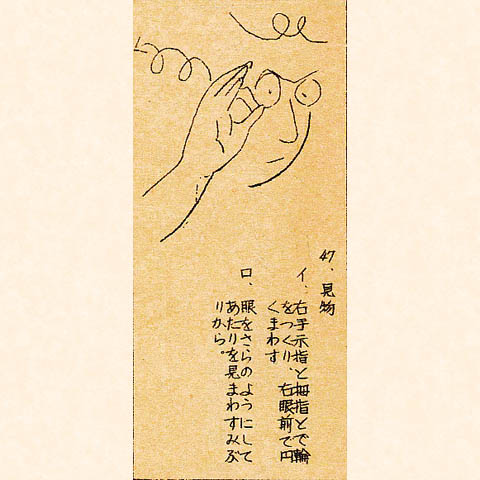 47、見物
イ、右手示指と拇指とで輪
をつくり、右眼前で円
くまわす
ロ、眼をさらのようにして
あたりを見まわすみぶ
りから。